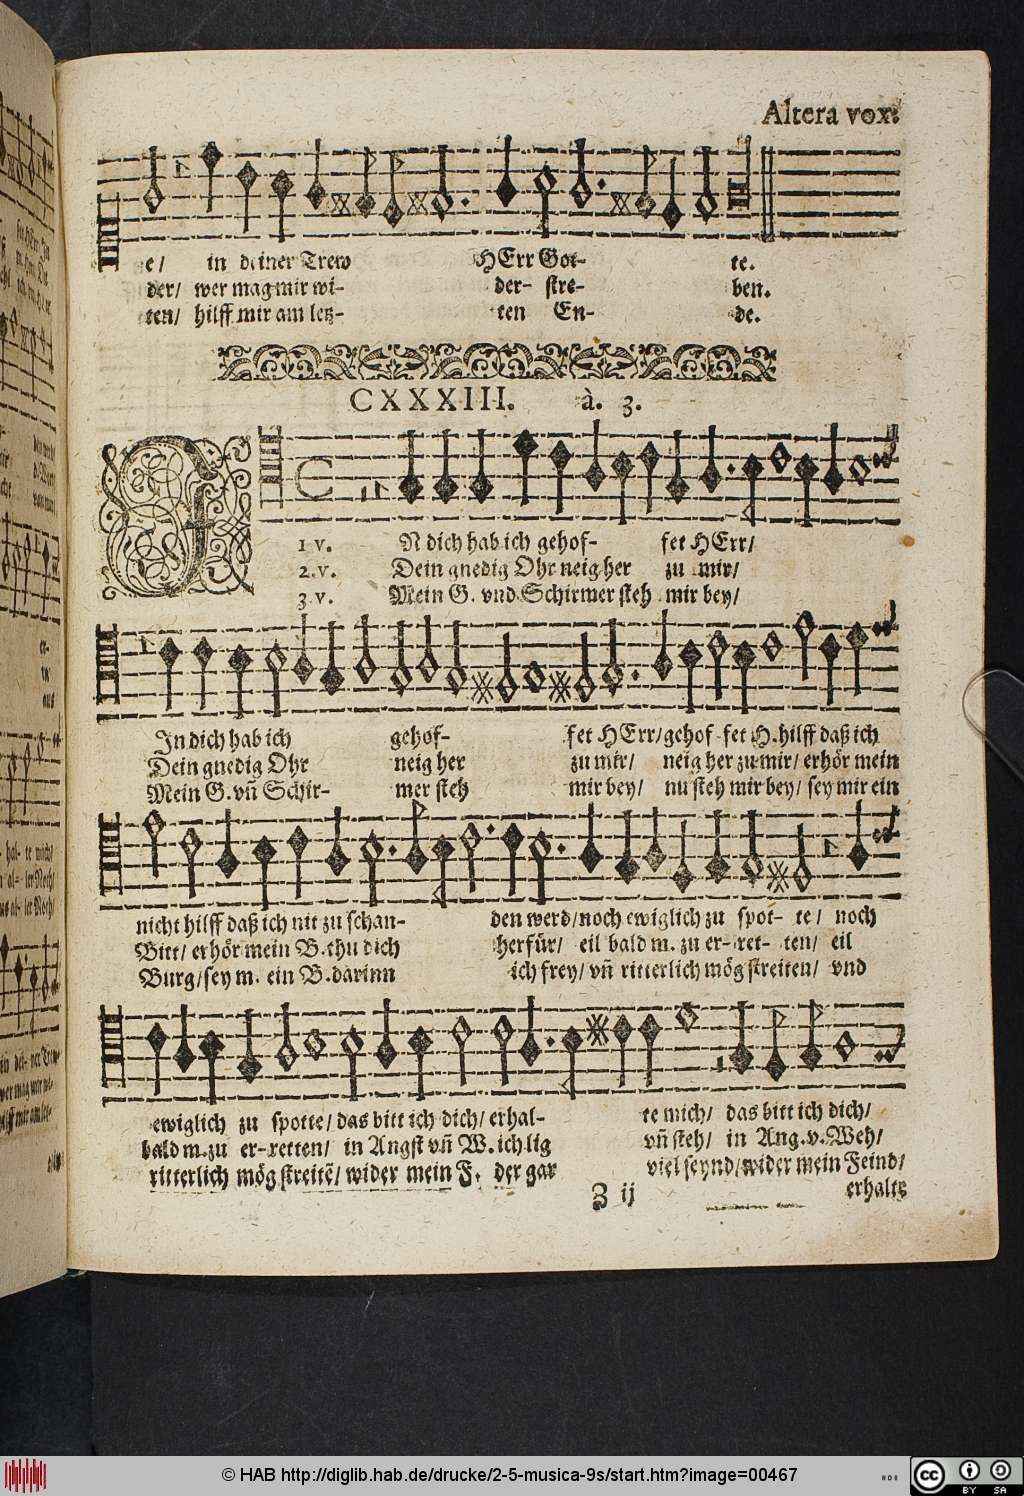 Altera vox.
te/ in deiner Trew HErr Got- te.
der/ wer mag mir wi- der- stre- ben.
ten/ hilff mir am letz- ten En- de.
CXXXIII. à. 3.
1 v. IN dich hab ich gehof- fet HErr/
2. v. Dein gnedig Ohr neig her zu mir/
3 v. Mein G. vnd Schirmer steh mir bey/
In dich hab ich gehof- fet HErr/ gehof- fet H. hilff daß ich
Dein gnedig Ohr neig her zu mir/ neig her zu mir/ erhör mein
Mein G. vñ Schir- mer steh mir bey/ nu steh mir bey/ sey mir ein
nicht hilff daß ich nit zu schan- den werd/ noch ewiglich zu spot- te/ noch
Bitt/ erhör mein B. thu dich herfür/ eil bald m. zu er- ret- ten/ eil
Burg/ sey m. ein B. darinn ich frey/ vñ ritterlich mög streiten/ vnd
ewiglich zu spotte/ das bitt ich dich/ erhal- te mich/ das bitt ich dich/
bald m. zu er-retten/ in Angst vñ W. ich lig vñ steh/ in Ang. v. Weh/
ritterlich mög streitē/ wider mein F. der gar viel seynd/ wider mein Feind/
Z ij erhalte
© HAB http://diglib.hab.de/drucke/2-5-musica-9s/start.htm?image=00467
cc BY SA